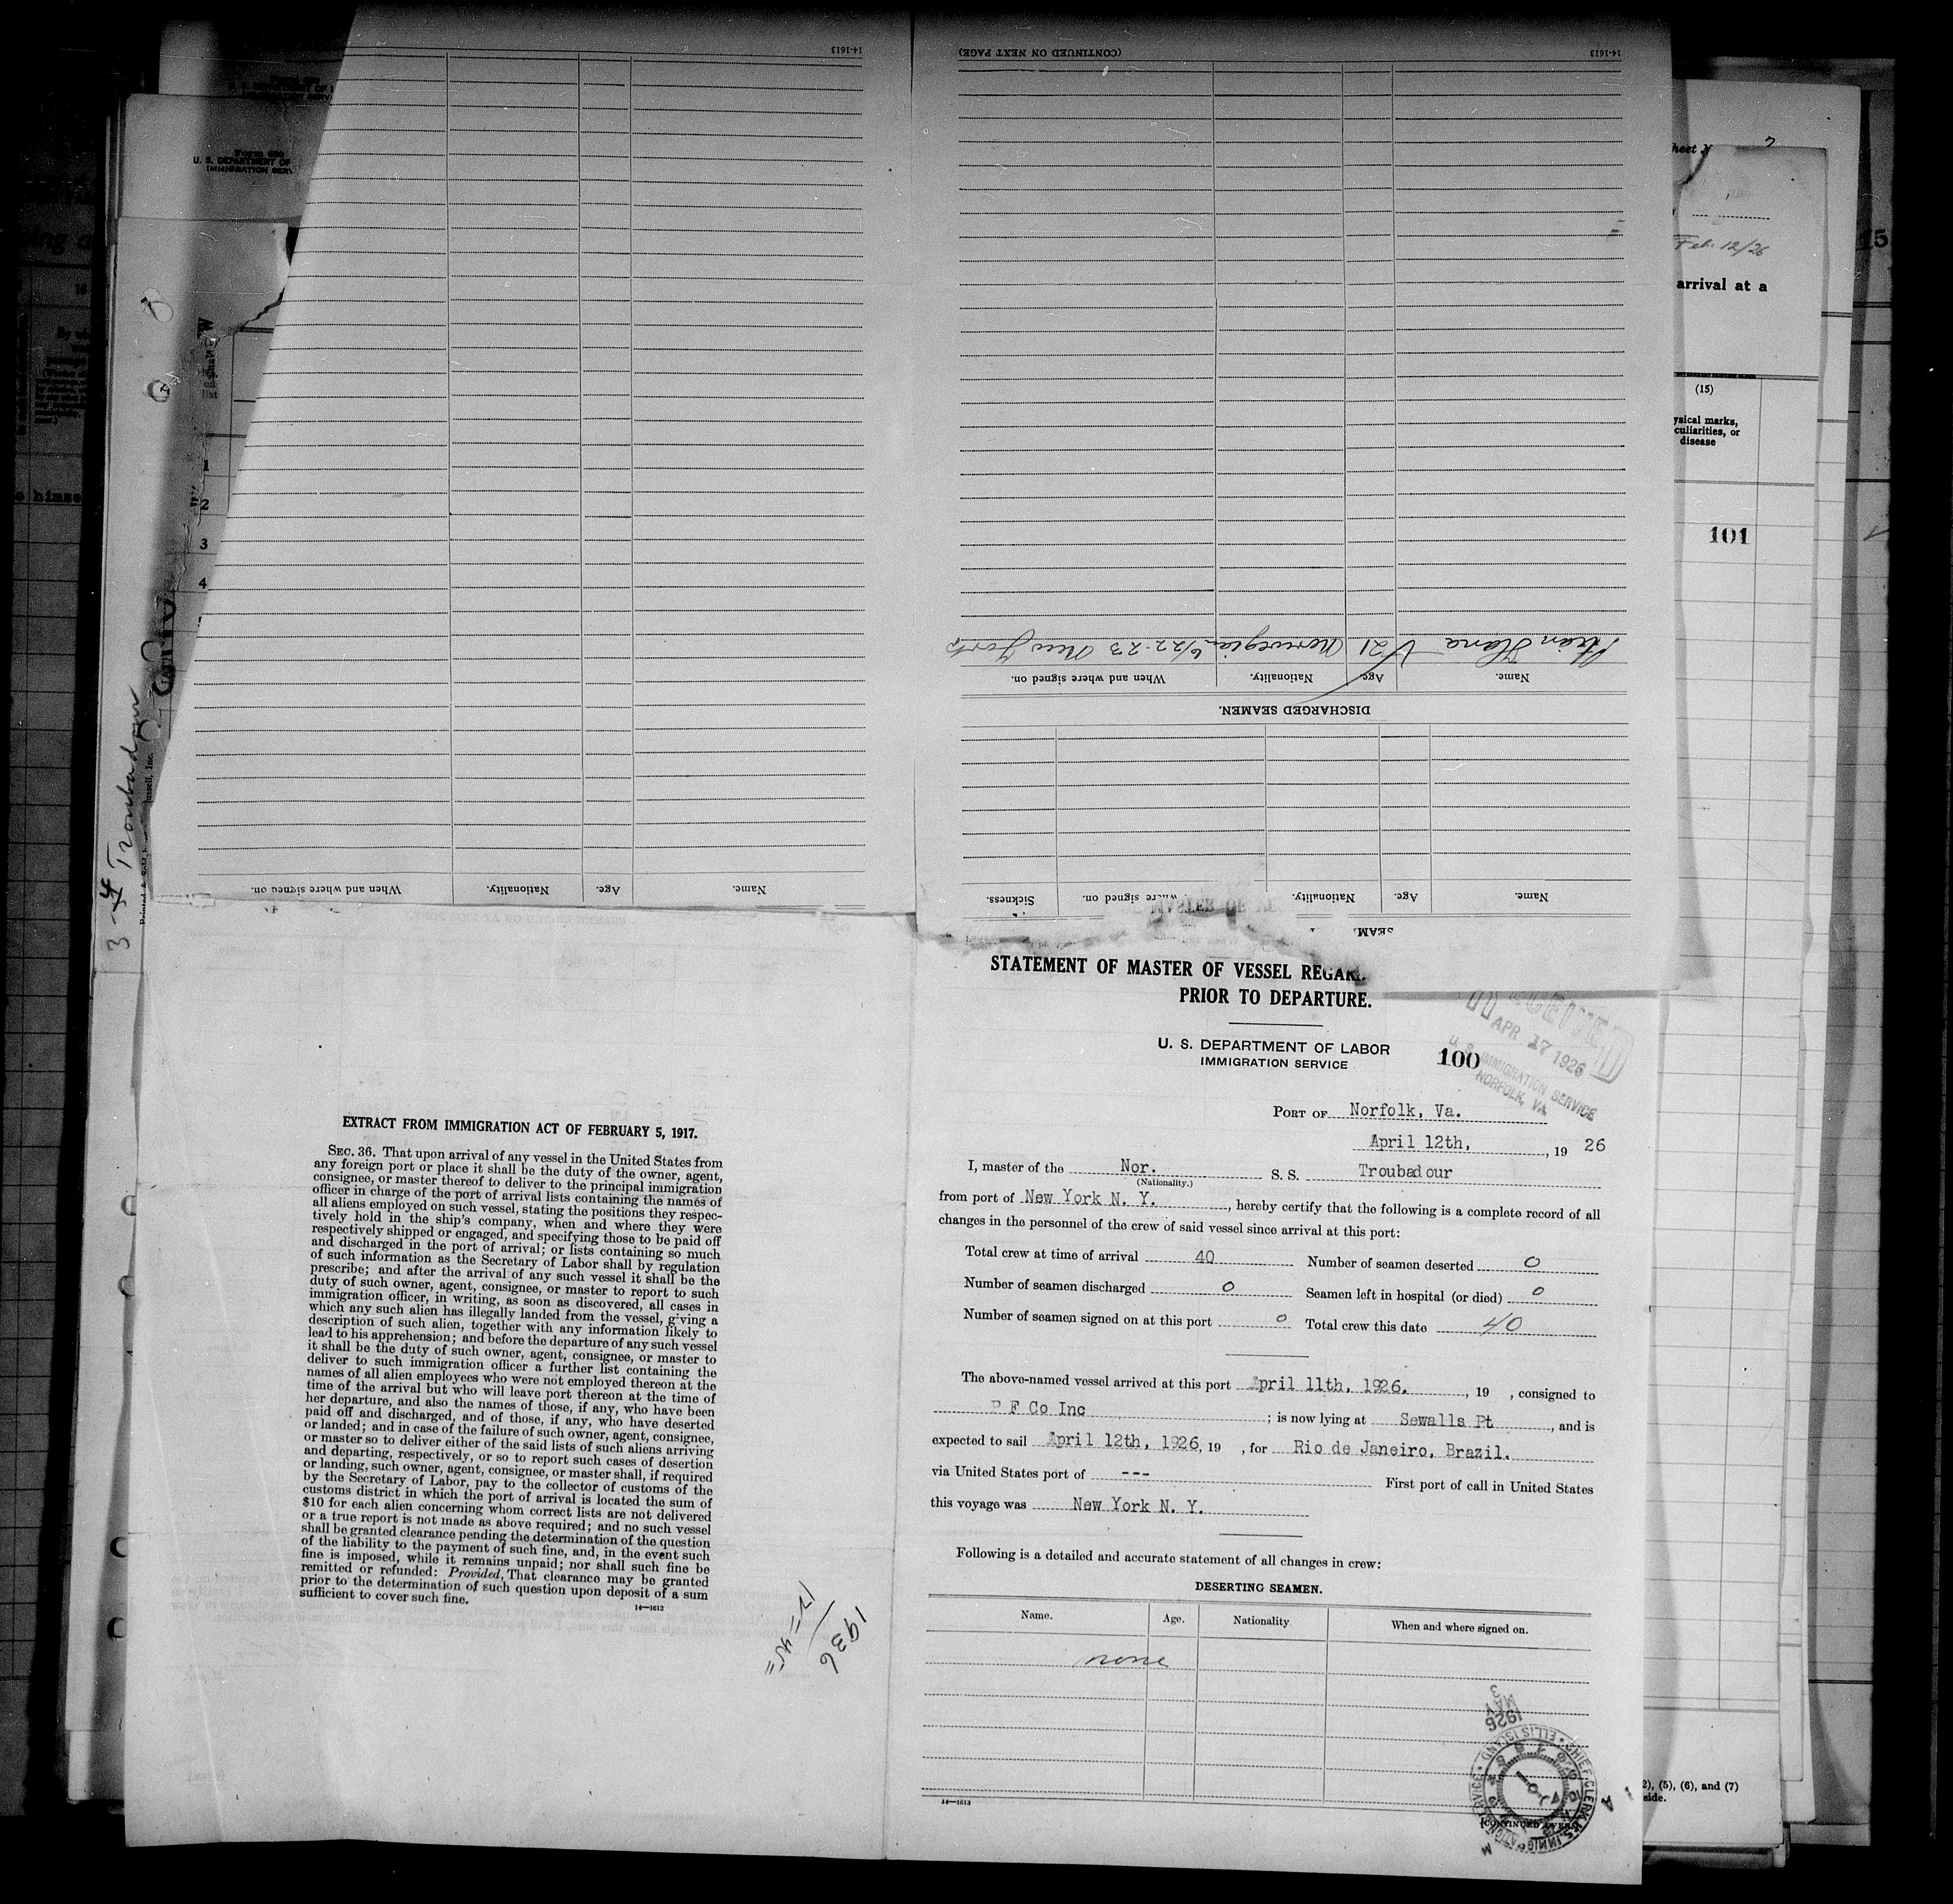 14-1613
(CONTINUED ON NEXT PAGE)
14-1613
Form 689
U. S. DEPARTMENT OF
IMMIGRATION SERV
Feb. 12/26
arrival at a
15
(15)
ysical marks,
culiarities, or
disease
101
1
2
3
4
o himse
3-4 Troubadour
ussell, Inc.
Hans 21 Norwegian 6/22-23 New York
Name. Age. Nationality. When and where signed on.
DISCHARGED SEAMEN.
Name. Age. Nationality. When and where signed on.
Name. Age. Nationality. where signed on. Sickness.
SEAM
STATEMENT OF MASTER OF VESSEL REGAR
PRIOR TO DEPARTURE.
U. S. DEPARTMENT OF LABOR
IMMIGRATION SERVICE
100
RECEIVED
APR 17 1926
U. S. IMMIGRATION SERVICE
NORFOLK, VA.
PORT OF Norfolk, Va.
April 12th, , 19 26
I, master of the Nor. S. S. Troubadour
(Nationality.)
from port of New York N. Y. , hereby certify that the following is a complete record of all
changes in the personnel of the crew of said vessel since arrival at this port:
Total crew at time of arrival 40 Number of seamen deserted 0
Number of seamen discharged 0 Seamen left in hospital (or died) 0
Number of seamen signed on at this port 0 Total crew this date 40
The above-named vessel arrived at this port April 11th, 1926. , 19 , consigned to
P F Co Inc ; is now lying at Sewalls Pt , and is
expected to sail April 12th, 1926, 19 , for Rio de Janeiro, Brazil.
via United States port of --- First port of call in United States
this voyage was New York N. Y.
Following is a detailed and accurate statement of all changes in crew:
DESERTING SEAMEN.
Name. Age. Nationality When and where signed on.
none
14—1613
1926
MAY
3
CHIEF CLERK U.S. IMMIGRATION SERVICE • ELLIS ISLAND •
2), (5), (6), and (7)
side.
EXTRACT FROM IMMIGRATION ACT OF FEBRUARY 5, 1917.
SEC. 36. That upon arrival of any vessel in the United States from
any foreign port or place it shall be the duty of the owner, agent,
consignee, or master thereof to deliver to the principal immigration
officer in charge of the port of arrival lists containing the names of
all aliens employed on such vessel, stating the positions they respec-
tively hold in the ship's company, when and where they were
respectively shipped or engaged, and specifying those to be paid off
and discharged in the port of arrival; or lists containing so much
of such information as the Secretary of Labor shall by regulation
prescribe; and after the arrival of any such vessel it shall be the
duty of such owner, agent, consignee, or master to report to such
immigration officer, in writing, as soon as discovered, all cases in
which any such alien has illegally landed from the vessel, giving a
description of such alien, together with any information likely to
lead to his apprehension; and before the departure of any such vessel
it shall be the duty of such owner, agent, consignee, or master to
deliver to such immigration officer a further list containing the
names of all alien employees who were not employed thereon at the
time of the arrival but who will leave port thereon at the time of
her departure, and also the names of those, if any, who have been
paid off and discharged, and of those, if any, who have deserted
or landed; and in case of the failure of such owner, agent, consignee,
or master so to deliver either of the said lists of such aliens arriving
and departing, respectively, or so to report such cases of desertion
or landing, such owner, agent, consignee, or master shall, if required
by the Secretary of Labor, pay to the collector of customs of the
customs district in which the port of arrival is located the sum of
$10 for each alien concerning whom correct lists are not delivered
or a true report is not made as above required; and no such vessel
shall be granted clearance pending the determination of the question
of the liability to the payment of such fine, and, in the event such
fine is imposed, while it remains unpaid; nor shall such fine be
remitted or refunded: Provided, That clearance may be granted
prior to the determination of such question upon deposit of a sum
sufficient to cover such fine.
14—1613
1936